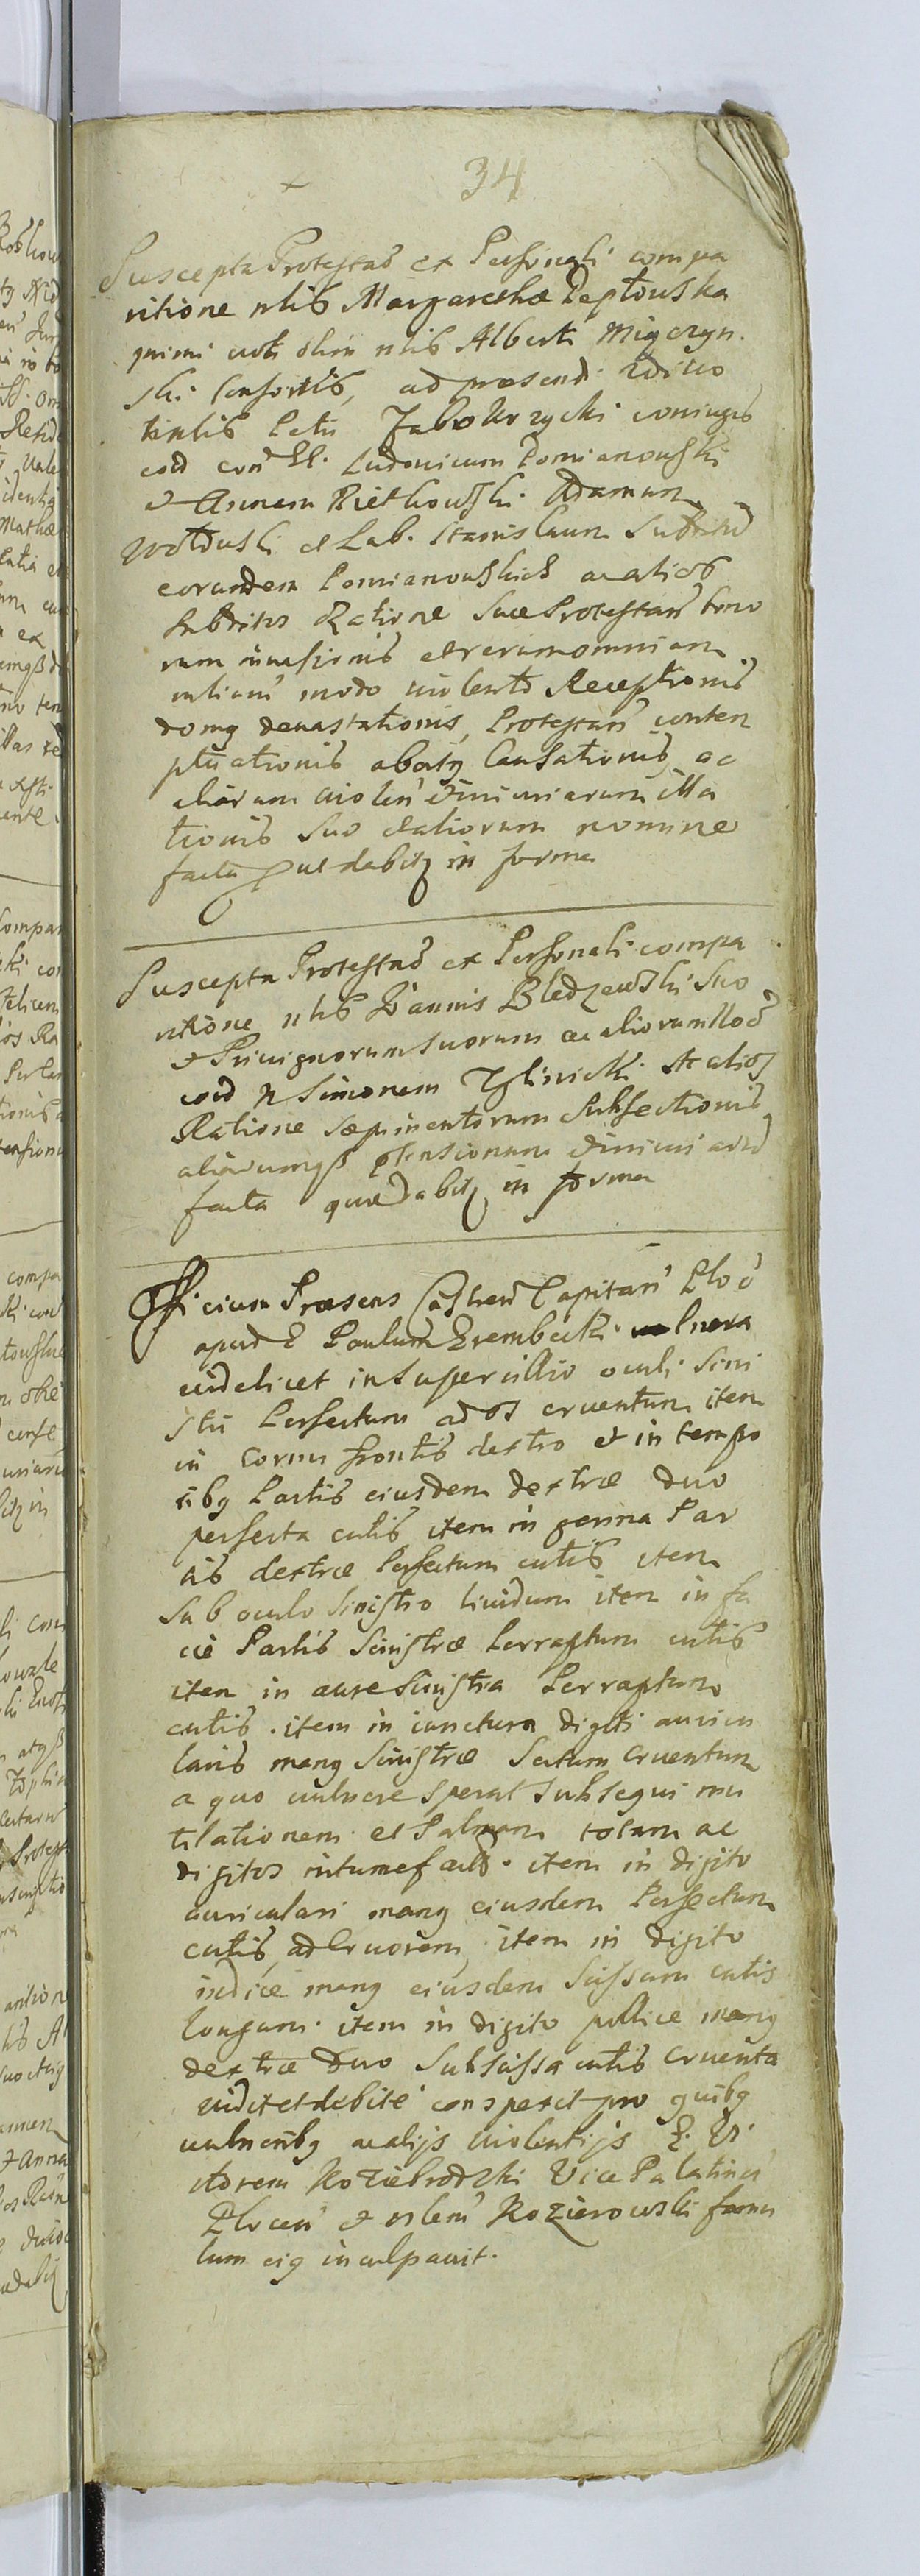 34
Suscepta Protestas ex Personali compa
ritione nlis Margarethæ Peptouska
primi voti olim nlis Alberti Migczyn
ski Consortis, ad præsens
tinlis Petri Jabołrzycki coniugis
cod con Ludovicum Pomianouski
et Annam Rietkowski Adamum
et Lab. Stanislaum Subditu
eorundem Pomianouskich ac alios
subditos Ratione suæ Protestan bono
rum inuasionis et rerum omnium
modo uiolento Receptionis
domg deuastationis, Protestan conten
Causationis ac
aliarum uiolen et iniuriarum illa
tionis suo et aliorum nomine
facta in forma
Suscepta Protestas ex Personali compa
ritione nlis Joannis Bledzewski suo
et Priuignorum suorum ac aliorum
cod N Simonem Zglinicki Ac alios
Ratione sæpimentorum Subsectionis
et iniuriaru
facta quæ dabitz in forma
Officium Præsens Castren Capitan Ploc
apud G Paulum Erembecki vulnera
uidelicet in Supercillio oculi Sini
stri Persectum ad os cruentum item
in cornu frontis dextro et in tempo
ribg Partis eiusdem dextræ duo
persecta cutis item in genna Par
tis dextræ Persectum cutis item
sub oculo sinistro liuidum item in fa
cie Partis Sinistræ Perraptum cutis
item in aure Sinistra Perraptum
cutis. item in iunctura digiti auricu
laris mang Sinistræ Sectum cruentum
a quo uulnere sperat subsequi mu
tilationem et Palmam totam ac
digitos intumefactos. item in digito
auriculari mang eiusdem Persectum
cutis, ad Cruorem, item in digito
indice mang eiusdem Scissum cutis
longum. item in digito pollice mang
dextræ duo Subscissa cutis cruenta
uidit et debite conspexit pro quibg
uulneribg ac alijs uiolentijs G. Vi
ctorem Koziebrodzki Vice Palatinu
Plocen et nlem Kozierowski famu
lum eig inculpauit.